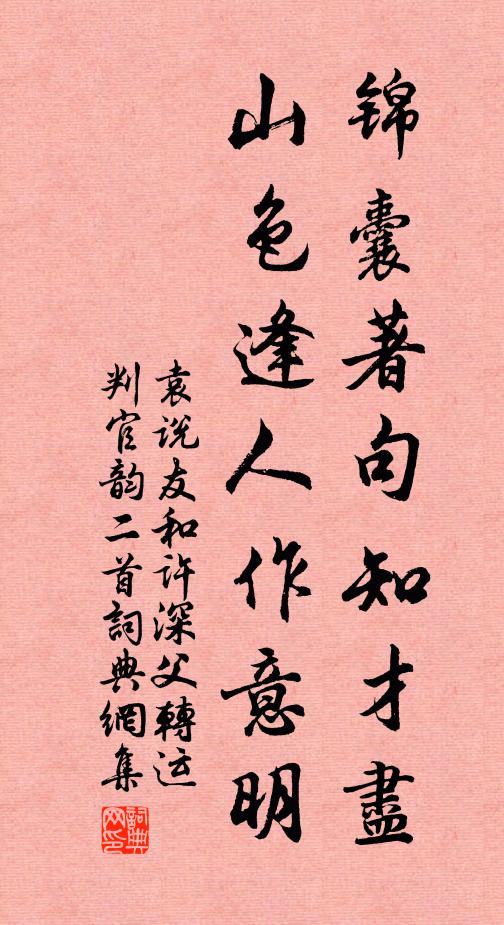 锦囊著句知才盡
山色逢人作意明
袁说友和许深父轉运
判官韵二首詞典網集
詞典
网印